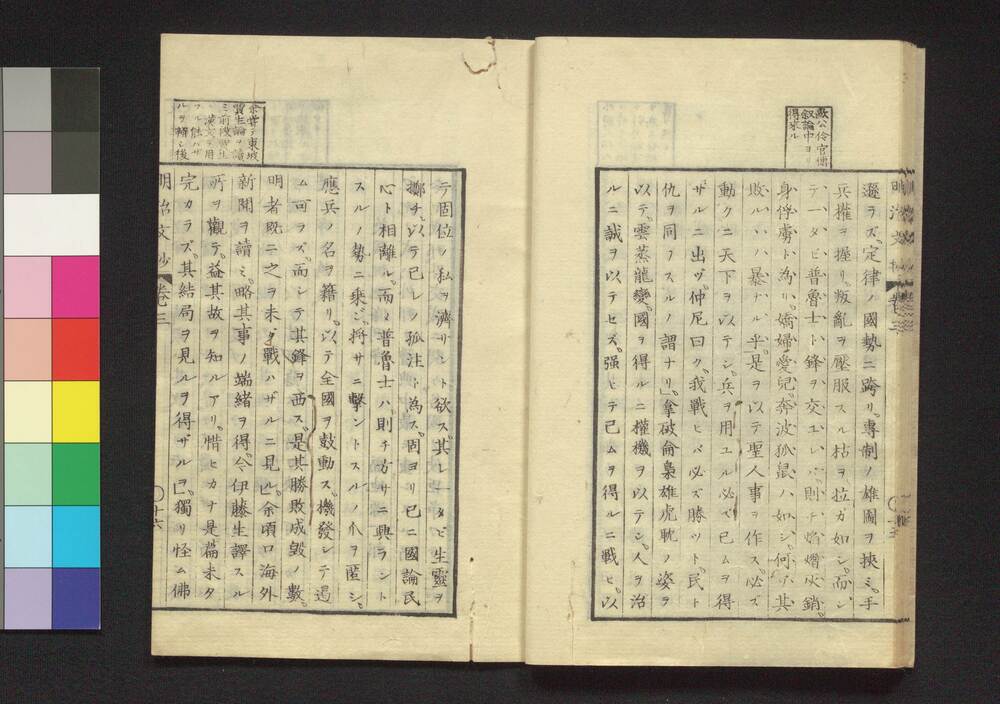 歐公伶官傳
叙論中ヨリ
得来ル
遜ラズ。定律ノ國勢ニ跨リ。專制ノ雄圖ヲ挾ミ。手
兵權ヲ握リ。叛亂ヲ壓服スル枯ヲ拉ガ如シ。而シ
テ一タビ普魯士ト鋒ヲ交ユレバ。則チ焰熸灰銷。
身俘虜ト為リ。嬌婦愛兒。奔波孤鼠ノ如シ。何ゾ其
敗ルヽノ暴ナル乎。是ヲ以テ聖人事ヲ作ス。必ズ
動クニ天下ヲ以テシ。兵ヲ用ユル必ズ已ムヲ得
ザルニ出ヅ。仲尼曰ク。我戰ヒバ必ズ勝ツト。民ト
仇ヲ同フスルノ謂ナリ。拿破侖梟雄虎眈ノ姿ヲ
以テ。雲蒸龍變。國ヲ得ルニ權機ヲ以テシ。人ヲ治
ルニ誠ヲ以テセズ。强ヒテ已ムヲ得ルニ戰ヒ。以
明治文抄 卷三
余嘗テ東坡
賈生論ヲ讀
ミ前段賈生
漢文ヲ用
フル能ハザ
ルヲ辨シ後
テ固位ノ私ヲ濟サント欲ス。其レ一タビ生靈ヲ
擲チ。以テ已レノ孤注ト為ス。固ヨリ已ニ國論民
心ト相離ル。而メ普魯士ハ則チ方サニ興ラント
スルノ勢ニ乘ジ。將サニ擊ントスルノ爪ヲ匿シ。
應兵ノ名ヲ籍リ。以テ全國ヲ鼓動ス。機發シテ遏
ム可ヲズ。而シテ其鋒ヲ西ス。是其勝敗成毀ノ數。
明者既ニ之ヲ未ダ戰ハザルニ見ル。余頃ロ海外
新聞ヲ讀ミ。略其事ノ端緒ヲ得。今伊藤生譯スル
所ヲ觀テ。益其故ヲ知ルアリ。惜ヒカナ是篇未タ
完カラズ。其結局ヲ見ルヲ得ザル已。獨リ怪ム佛
明治文抄 卷三
〇十六